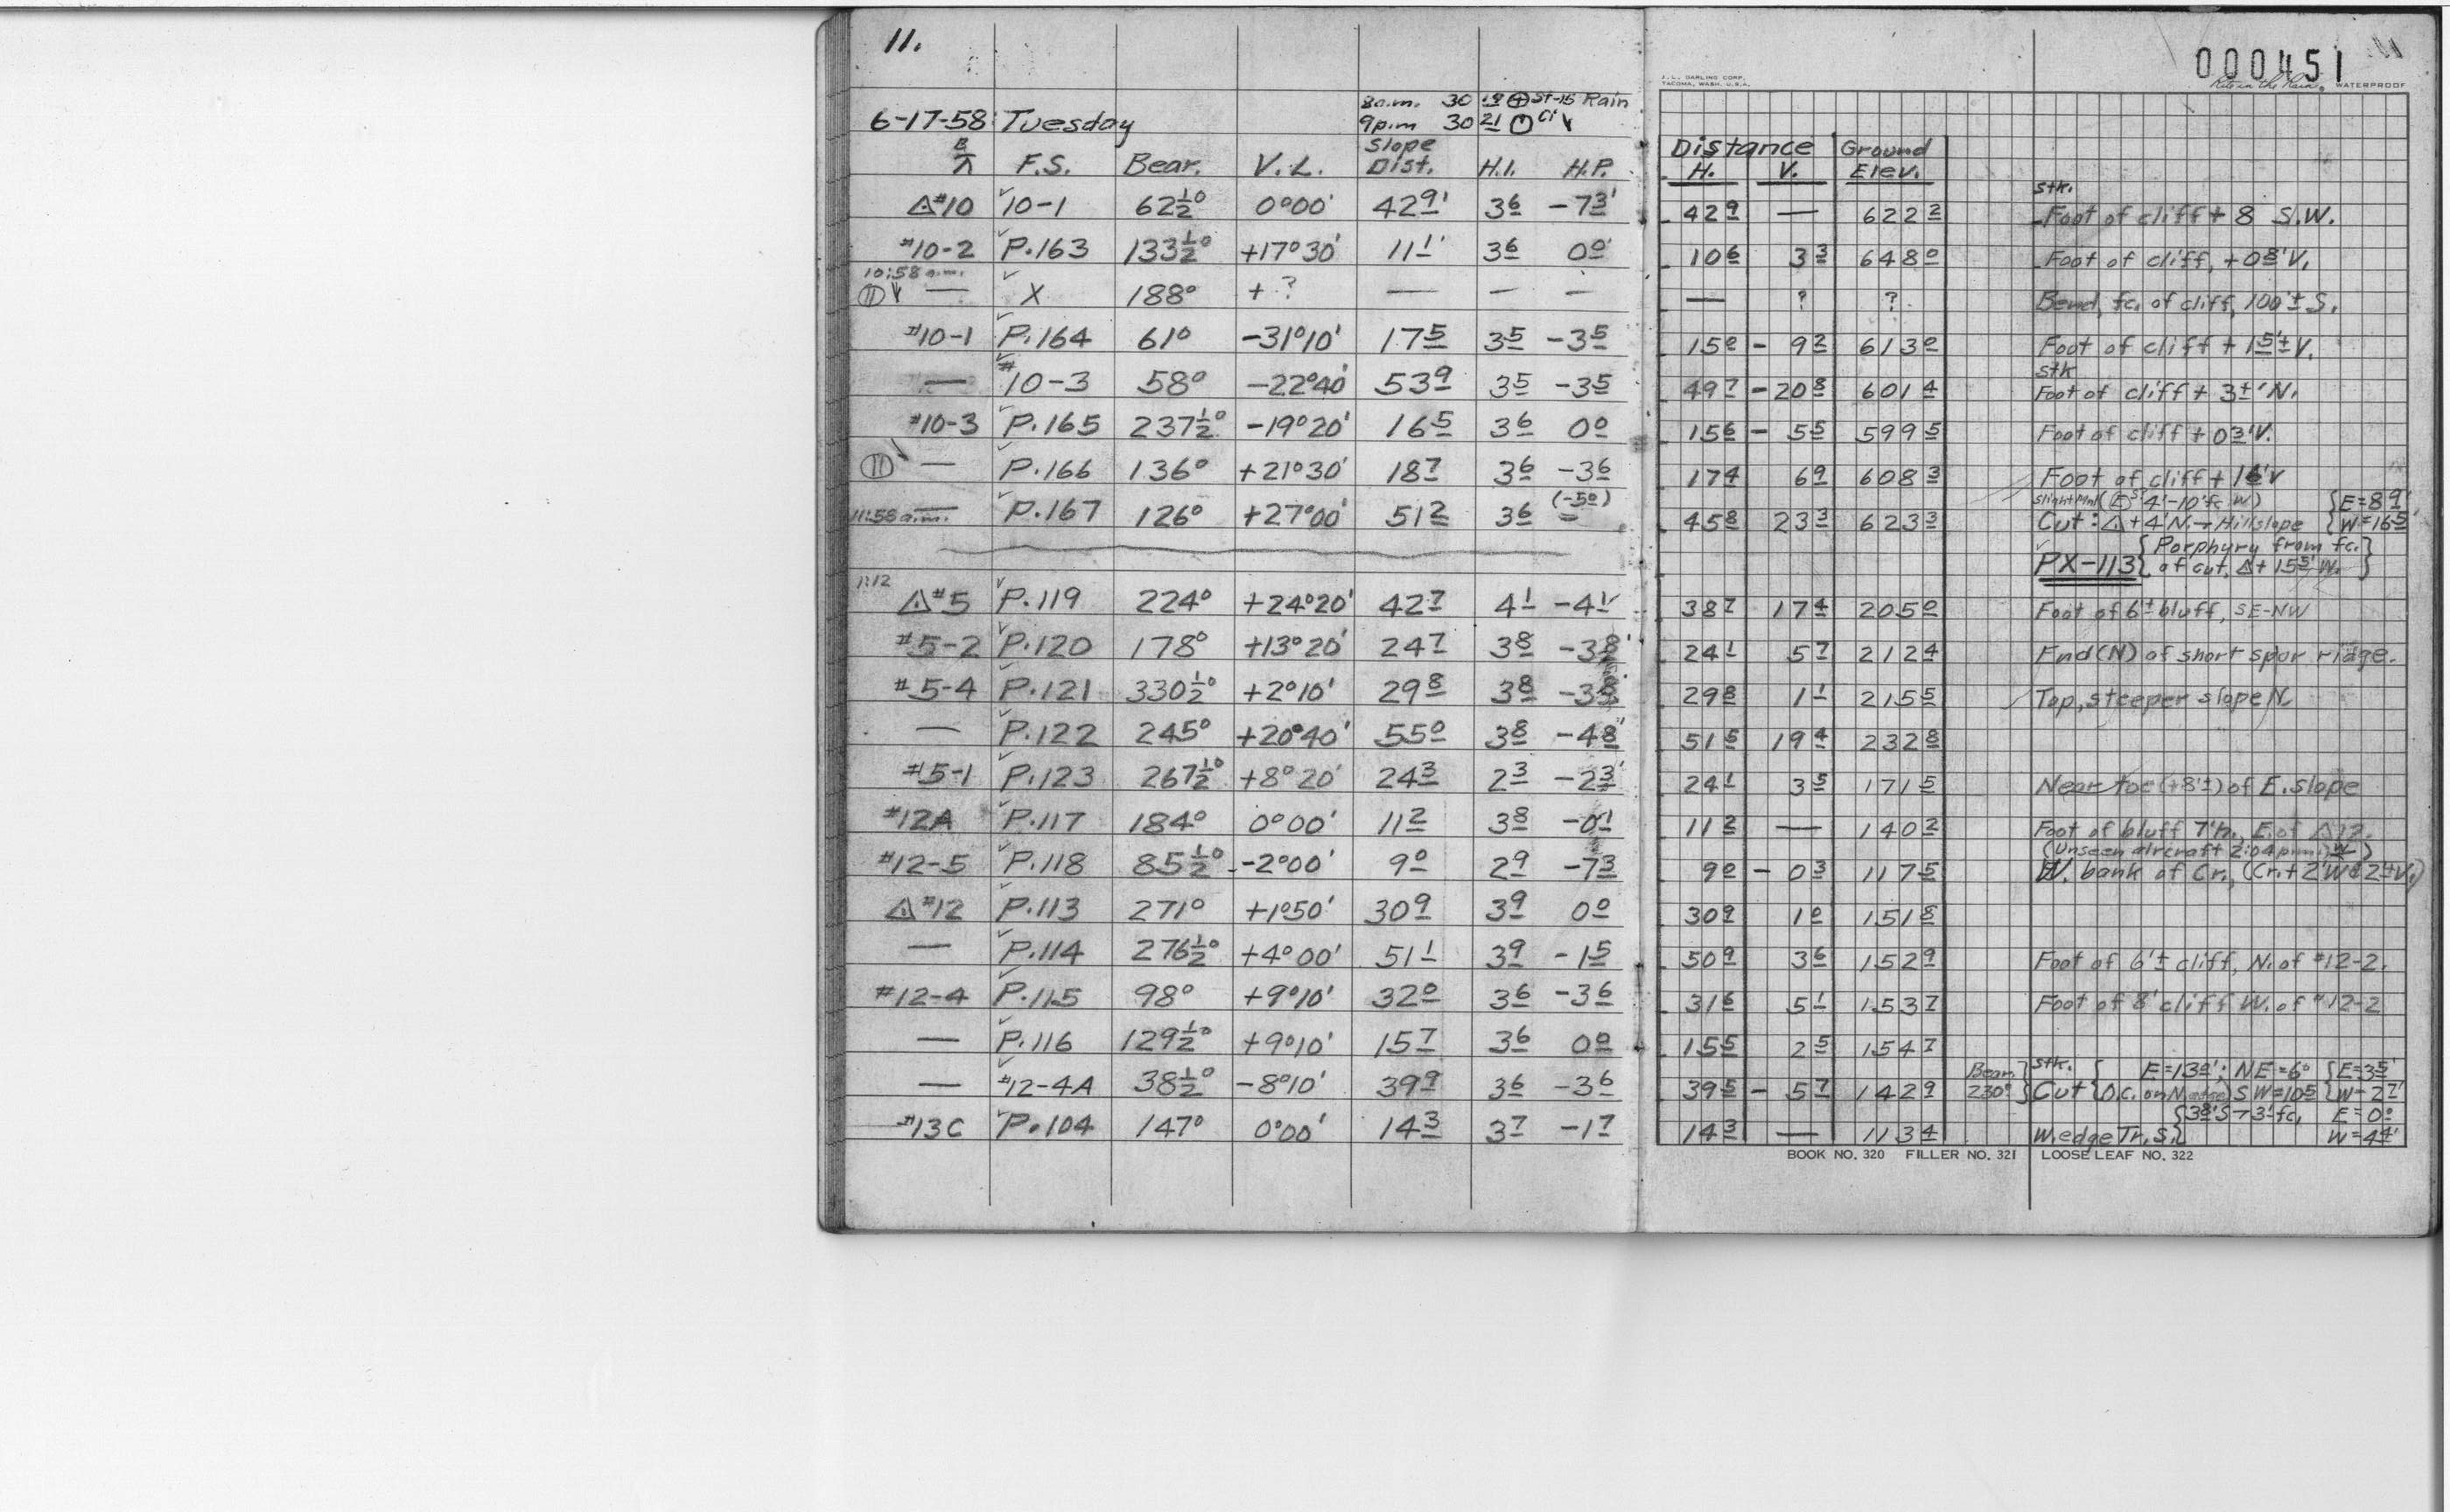 11.
000451
J. L. DARLING CORP.
TACOMA, WASH. U.S.A.
Rite in the Rain WATERPROOF
8a.m. 30 19 ⊕ St-15 Rain
6-17-58 Tuesday 9p.m 30 21 Ci
B/⊼ F.S. Bear. V.L. Slope Dist. H.I. H.P. Distance H. V. Ground Elev.
△#10 10-1 62½° 0°00' 42 9' 3 6 -7 3' 42 9 — 622 2 stk. Foot of cliff + 8 S.W.
#10-2 P.163 133½° +17°30' 11 1' 3 6 0 0' 10 6 3 3 648 0 Foot of cliff, +0 8'V.
10:58 a.m.
⑪ — X 188° + ? — — — — ? ? Bend, fc. of cliff, 100'± S.
#10-1 P.164 61° -31°10' 17 5 3 5 -3 5 15 0 - 9 2 613 0 Foot of cliff + 1 5'± V.
— #10-3 58° -22°40' 53 9 3 5 -3 5 49 7 -20 8 601 4 stk Foot of cliff + 3±' N.
#10-3 P.165 237½° -19°20' 16 5 3 6 0 0 15 6 - 5 5 599 5 Foot of cliff + 0 3'V.
⑪ — P.166 136° +21°30' 18 7 3 6 -3 6 17 4 6 9 608 3 Foot of cliff + 'V
11:58 a.m. — P.167 126° +27°00' 51 2 3 6 (-5 0) 45 8 23 3 623 3 4'-10' fc. W) {E=8 9'
Cut: △ + 4' N. → Hillslope {W=16 5'
PX-113 {Porphyry from fc.}
{of cut, △ + 15 5' W.}
1:12
△#5 P.119 224° +24°20' 42 7 4 1 -4 1' 38 7 17 4 205 0 Foot of 6'± bluff, SE-NW
#5-2 P.120 178° +13°20' 24 7 3 8 -3 8' 24 1 5 7 212 4 End (N) of short spur ridge.
#5-4 P.121 330½° +2°10' 29 8 3 8 -3 8' 29 8 1 1 215 5 Top, steeper slope N.
— P.122 245° +20°40' 55 0 3 8 -4 8' 51 5 19 4 232 8
#5-1 P.123 267½° +8°20' 24 3 2 3 -2 3' 24 1 3 5 171 5 Near toe (+8'±) of E. slope
#12A P.117 184° 0°00' 11 2 3 8 -0 1 11 2 — 140 2 Foot of bluff 7'h., E. of △12.
(Unseen aircraft 2:04 p.m. W)
#12-5 P.118 85½° -2°00' 9 0 2 9 -7 3 9 0 - 0 3 117 5 W. bank of Cr., (Cr. + 2'W & 2'±V.)
△#12 P.113 271° +1°50' 30 9 3 9 0 0 30 9 1 0 151 8
— P.114 276½° +4°00' 51 1 3 9 -1 5 50 9 3 6 152 9 Foot of 6'± cliff, N. of #12-2.
#12-4 P.115 98° +9°10' 32 0 3 6 -3 6 31 6 5 1 153 7 Foot of 8' cliff W. of #12-2
— P.116 129½° +9°10' 15 7 3 6 0 0 15 5 2 5 154 7
— #12-4A 38½° -8°10' 39 9 3 6 -3 6 39 5 - 5 7 142 9 Bear. 230° stk. Cut E=13 0'; NE=6 0 {E=3 5'
{O.C. on N. edge} SW=10 5 {W=2 7'
#13C P.104 147° 0°00' 14 3 3 7 -1 7 14 3 — 113 4 W. edge Tr. S. {3 8'S → 3' fc, E=0 0 W=4 4'
BOOK NO. 320 FILLER NO. 321 LOOSE LEAF NO. 322